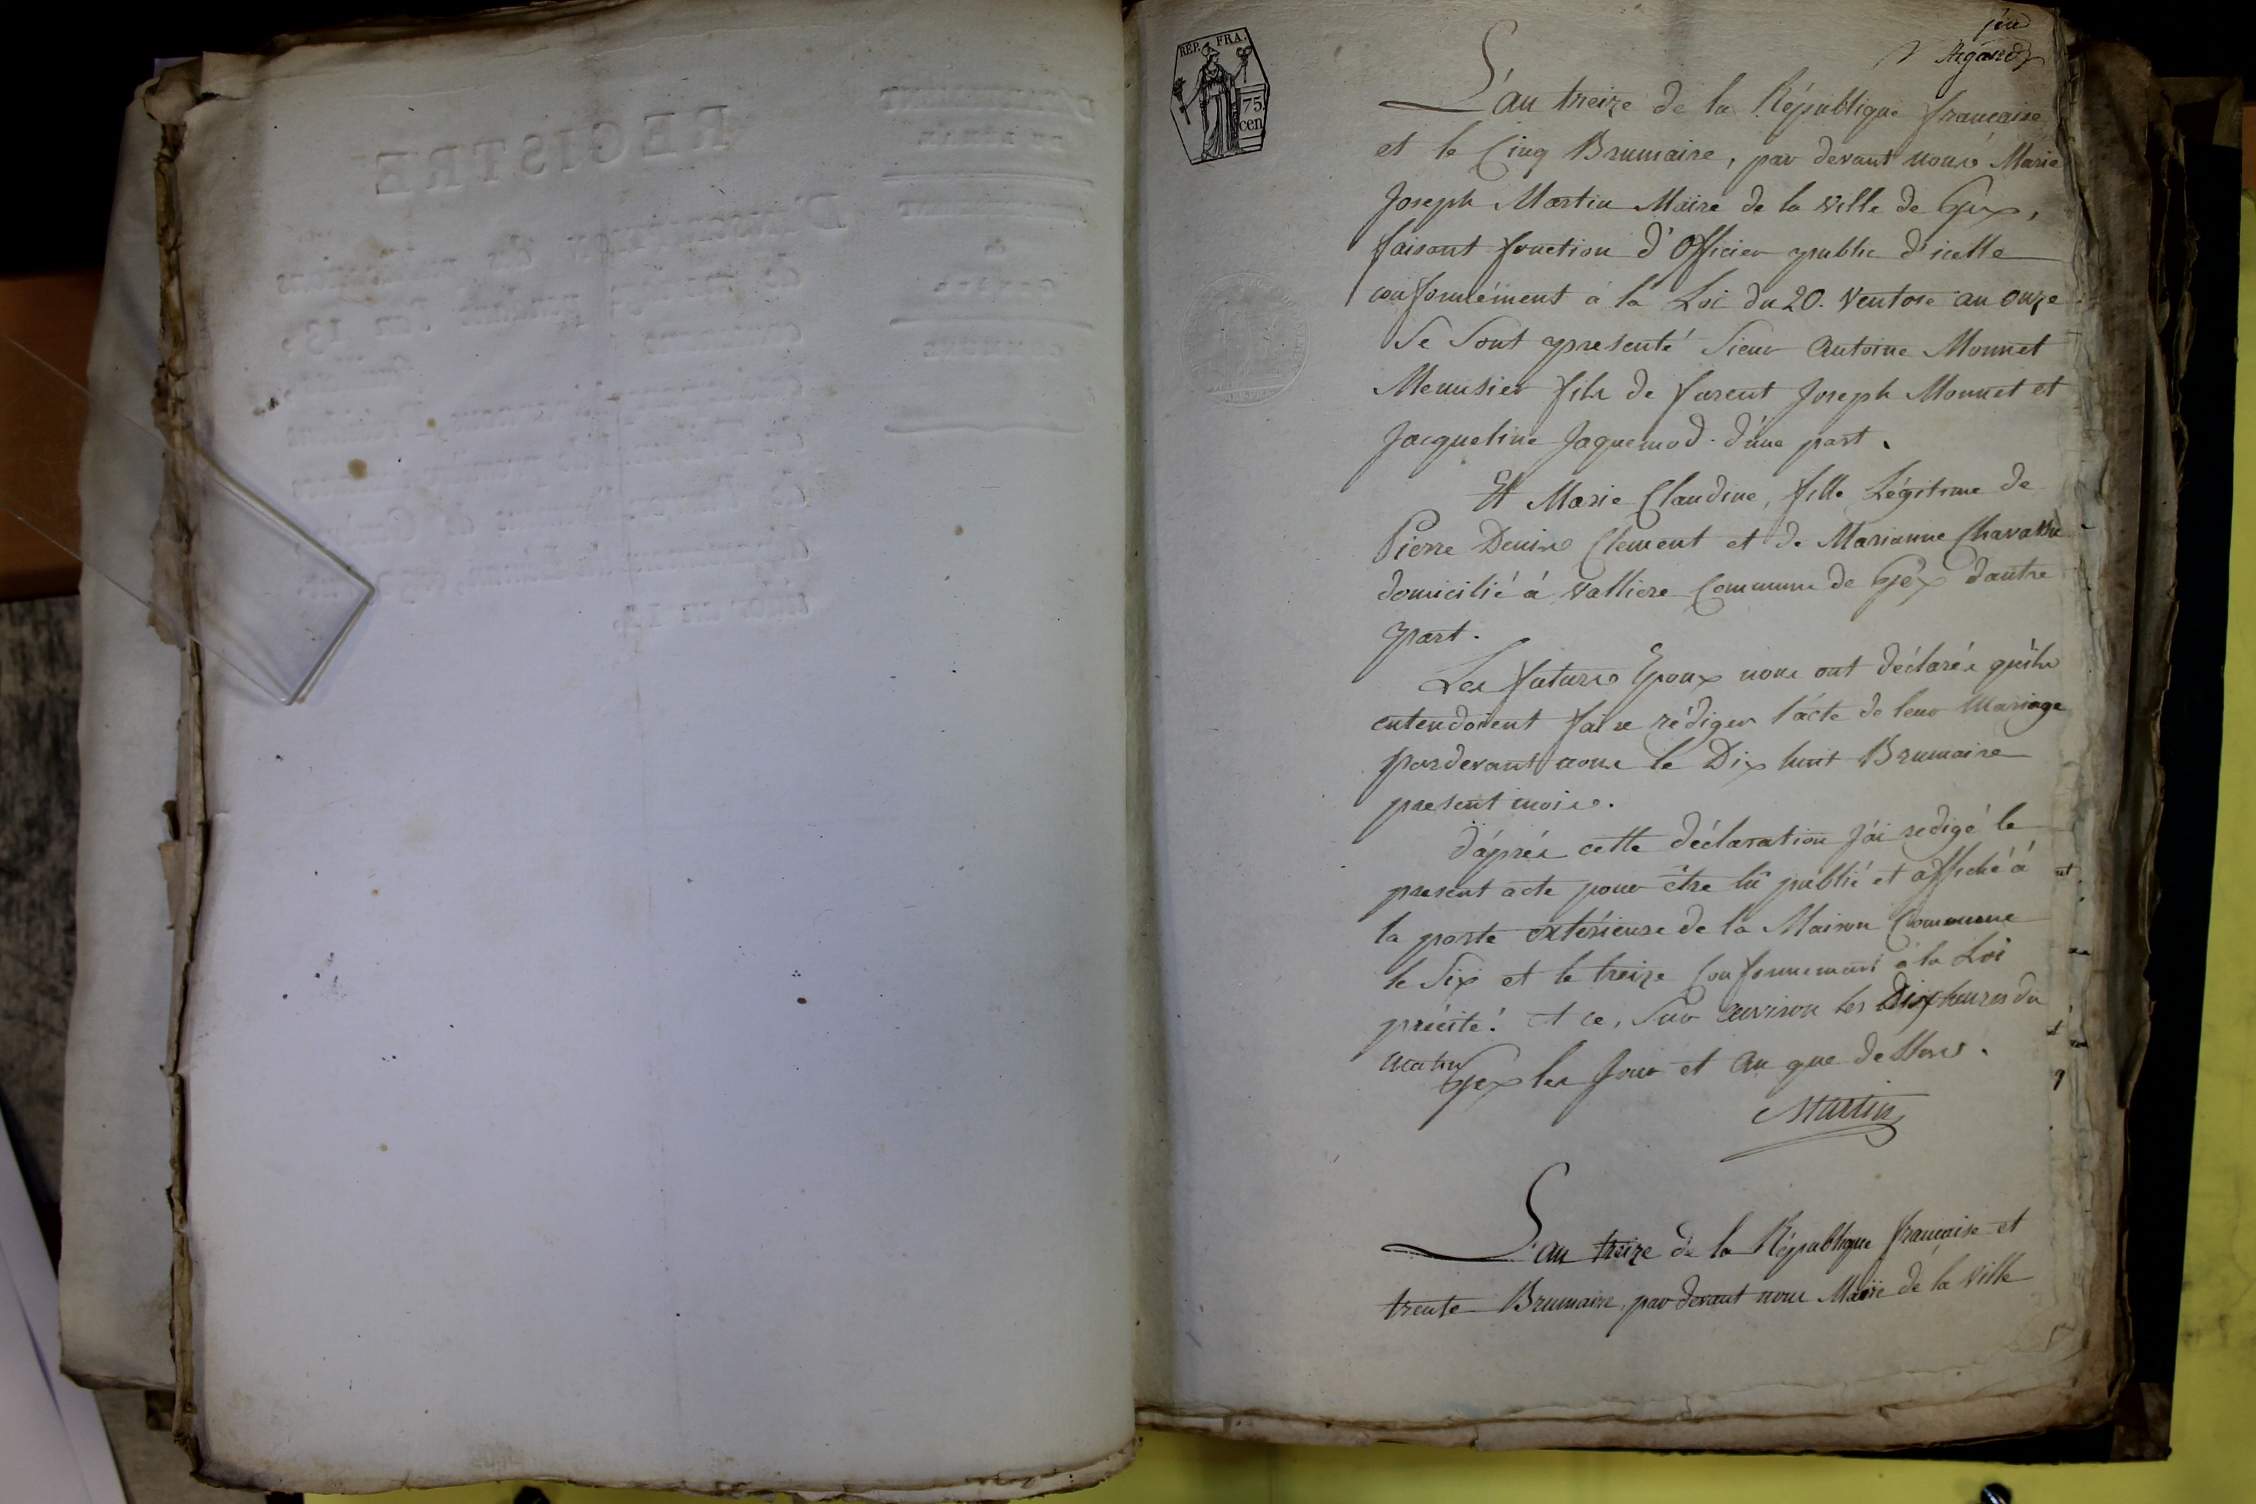 REGISTRE
REP. FRA.
75.
cen
Regard
L'an treize de la République française
et le Cinq Brumaire, par devant nous Marie
Joseph Martin Maire de la ville de Gex,
faisant fonction d'Officier public d'icelle
conformément à la Loi du 20. Ventose an onze
Se sont presenté Sieur Antoine Monnet
Menusier fils de furent Joseph Monnet et
Jacqueline Jaquemod. d'une part.
Et Marie Claudine, fille Légitime de
Pierre Denis Clement et de Marianne
domicilié à valliere Commune de Géx d'autre
part.
Les futurs Epoux nous ont déclarés qu'ils
entendoient faire rédiger l'acte de leur Mariage
pardevant nous le Dix huit Brumaire
present mois.
d'aprés cette déclaration j'ai redigé le
present acte pour être lû publié et affiché à
la porte extérieure de la Maison Commune
le Six et le treize Conformement à la Loi
précité. et ce, Sur environ les Dix heures du
matin
Gex les Jour et an que dessus.
Martin
L'an treize de la République française et
trente Brumaire, par devant nous Maire de la ville